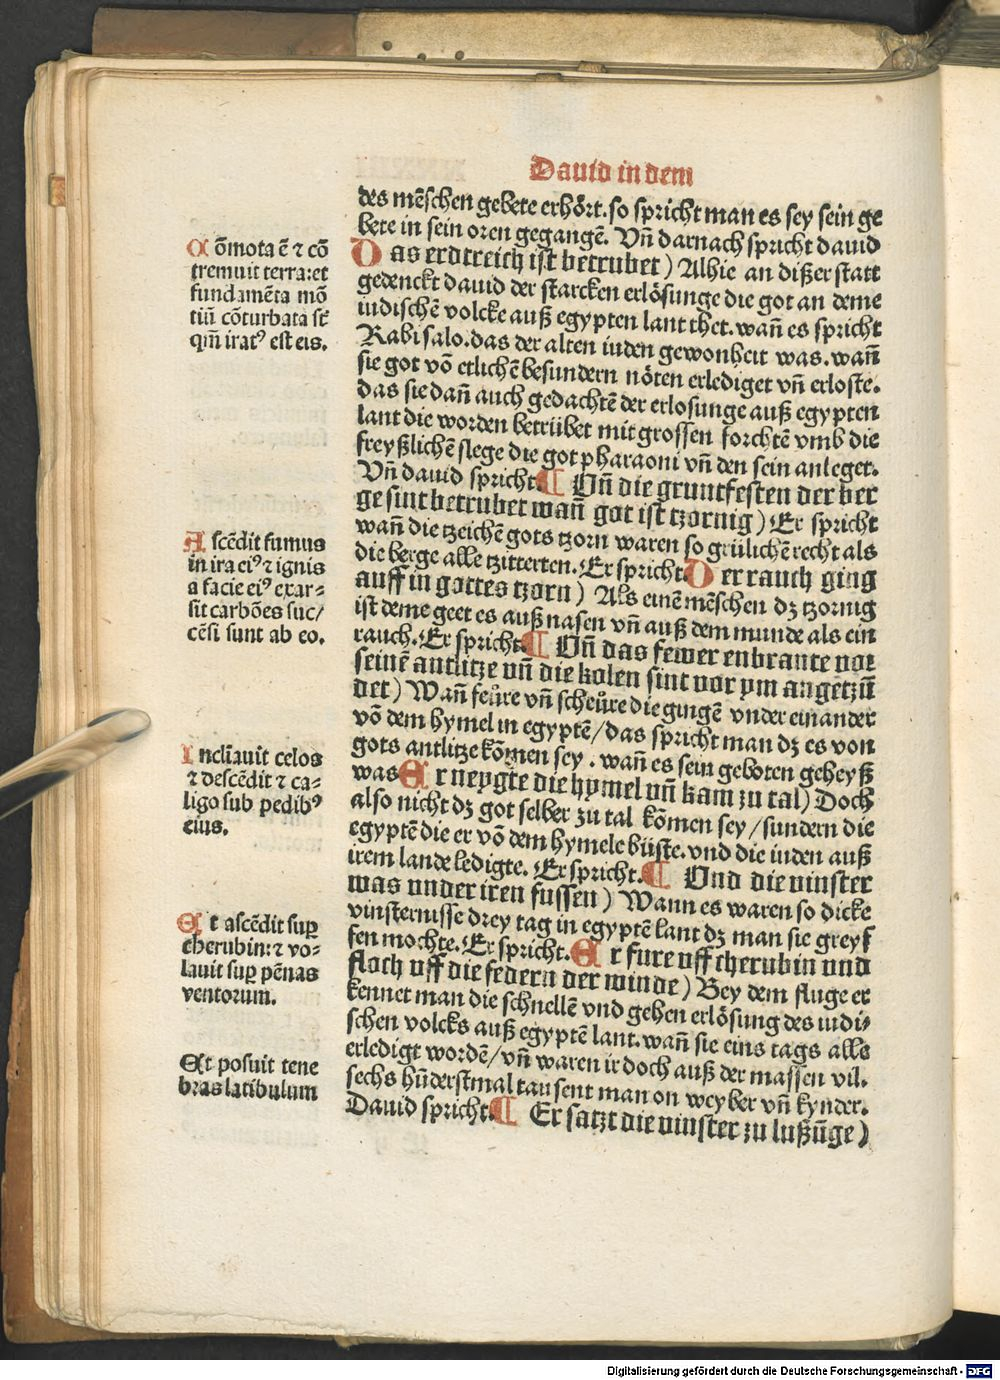 Dauid in dem
des mēschen gebete erhört. so spricht man es sey sein ge
bete in sein oren gegangē. Vñ darnach spricht dauid
Das erdtreich ist betrubet) Alhie an dißer statt
gedenckt dauid der starcken erlösunge die got an deme
iudischē volcke auß egypten lant thet. wañ es spricht
Rabi salo. das der alten iuden gewonheit was. wañ
sie got vō etlichē besundern nöten erlediget vñ erloste.
das sie dañ auch gedachtē der erlosunge auß egypten
lant die worden betrübet mit grossen forchtē vmb die
freyßlichē slege die got pharaoni vñ den sein anleget.
Vñ dauid spricht. ¶ Vñ die gruntfesten der ber
ge sint betrubet wañ got ist tzornig) Er spricht
wañ die tzeichē gots tzorn waren so grülichē recht als
die berge alle tzitterten. Er spricht. Der rauch ging
auff in gottes tzorn) Als einē mēschen dz tzornig
ist deme geet es auß nasen vñ auß dem munde als ein
rauch. Er spricht. ¶ Vñ das fewer enbrante vor
seinē antlitze vñ die kolen sint vor ym angētzū
det) Wañ feüre vñ scheüre die gingē vnder einander
vō dem hymel in egyptē/das spricht man dz es von
gots antlitze kōmen sey. wañ es sein geboten geheyß
was Er neygte die hymel vñ kam zu tal) Doch
also nicht dz got selber zu tal kōmen sey/sundern die
egyptē die er vō dem hymele büste. vnd die iuden auß
irem lande ledigte. Er spricht. ¶ Vnd die vinster
was vnder iren fussen) Wann es waren so dicke
vinsternisse drey tag in egyptē lant dz man sie greyf
fen mochte. Er spricht. Er fure vff cherubin vnd
floch vff die federn der winde) Bey dem fluge er
kennet man die schnellē vnd gehen erlösung des iudi⸗
schen volcks auß egyptē lant. wañ sie eins tags alle
erledigt wordē/vñ waren ir doch auß der massen vil.
sechs hūderstmal tausent man on weyber vñ kynder.
Dauid spricht. ¶ Er satzt die vinster zu lußūge)
Cōmota ē ⁊ cō
tremuit terra: et
fundamēta mō
tiū cōturbata st̄
qm̄ iratꝰ est eis.
Ascēdit fumus
in ira eiꝰ ⁊ ignis
a facie eiꝰ exar⸗
sit carbōes suc/
cēsi sunt ab eo.
Incli̅auit celos
⁊ descēdit ⁊ ca⸗
ligo sub pedibꝰ
eius.
Et ascēdit suꝑ
cherubin: ⁊ vo⸗
lauit suꝑ pēnas
ventorum.
Et posuit tene
bras latibulum
Digitalisierung gefördert durch die Deutsche Forschungsgemeinschaft - DFG